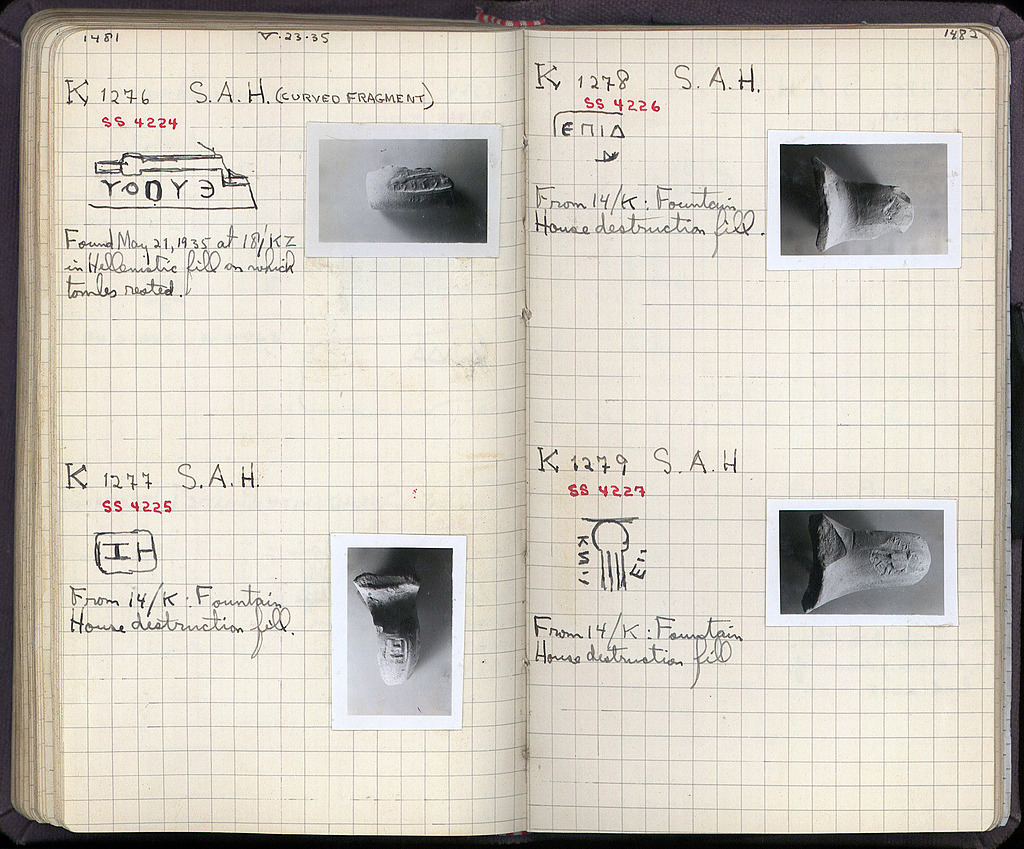 1481 V·23·35
K 1276 S.A.H. (CURVED FRAGMENT)
SS 4224
ΥΟ Υ Э
Found May 21, 1935 at 18/ΚΖ
in Hellenistic fill on which
tombs rested.
K 1277 S.A.H.
SS 4225
From 14/K: Fountain
House destruction fill.
1482
K 1278 S.A.H.
SS 4226
ΕΠΙΔ
From 14/K: Fountain
House destruction fill.
K 1279 S.A.H
SS 4227
From 14/K: Fountain
House destruction fill